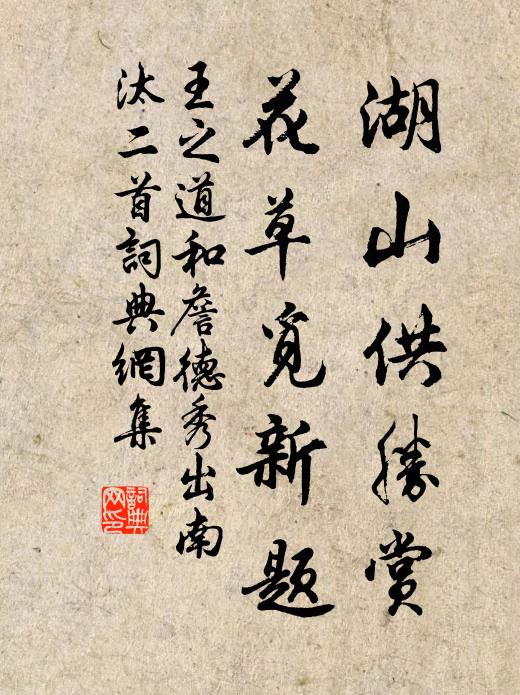 湖山供勝賞
花草覓新題
王之道和詹德秀出南
汰二首詞典網集
詞典
网印